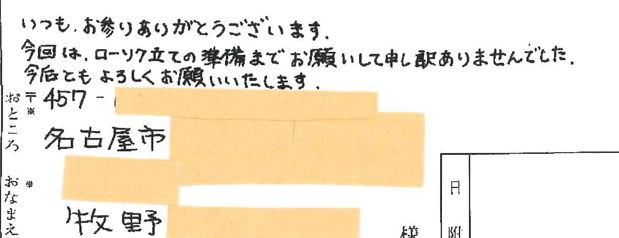 いつも、お参りありがとうございます.
今回は、ローソク立ての準備までお願いして申し訳ありませんでした.
今后ともよろしくお願いいたします.
〒457-
※
おところ
名古屋市
おなまえ
※
牧野
様
日附